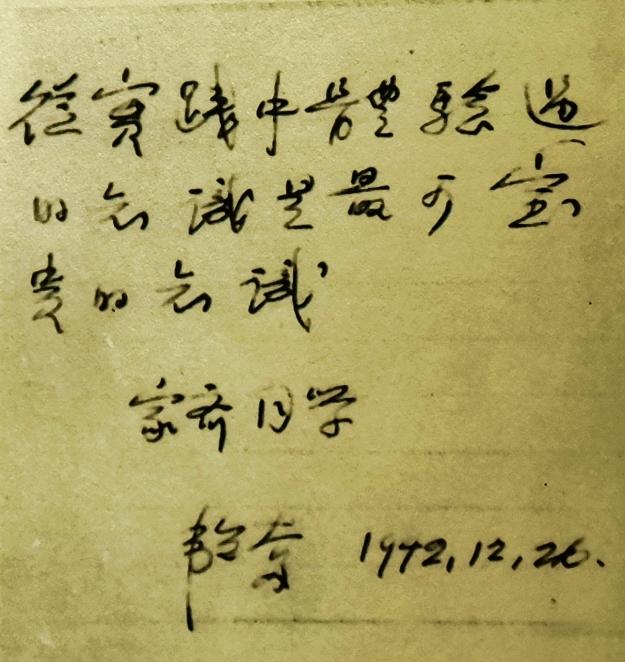 從實踐中體驗過
的知識是最可宝
貴的知識
家齐同学
韜奮 1942.12.26.